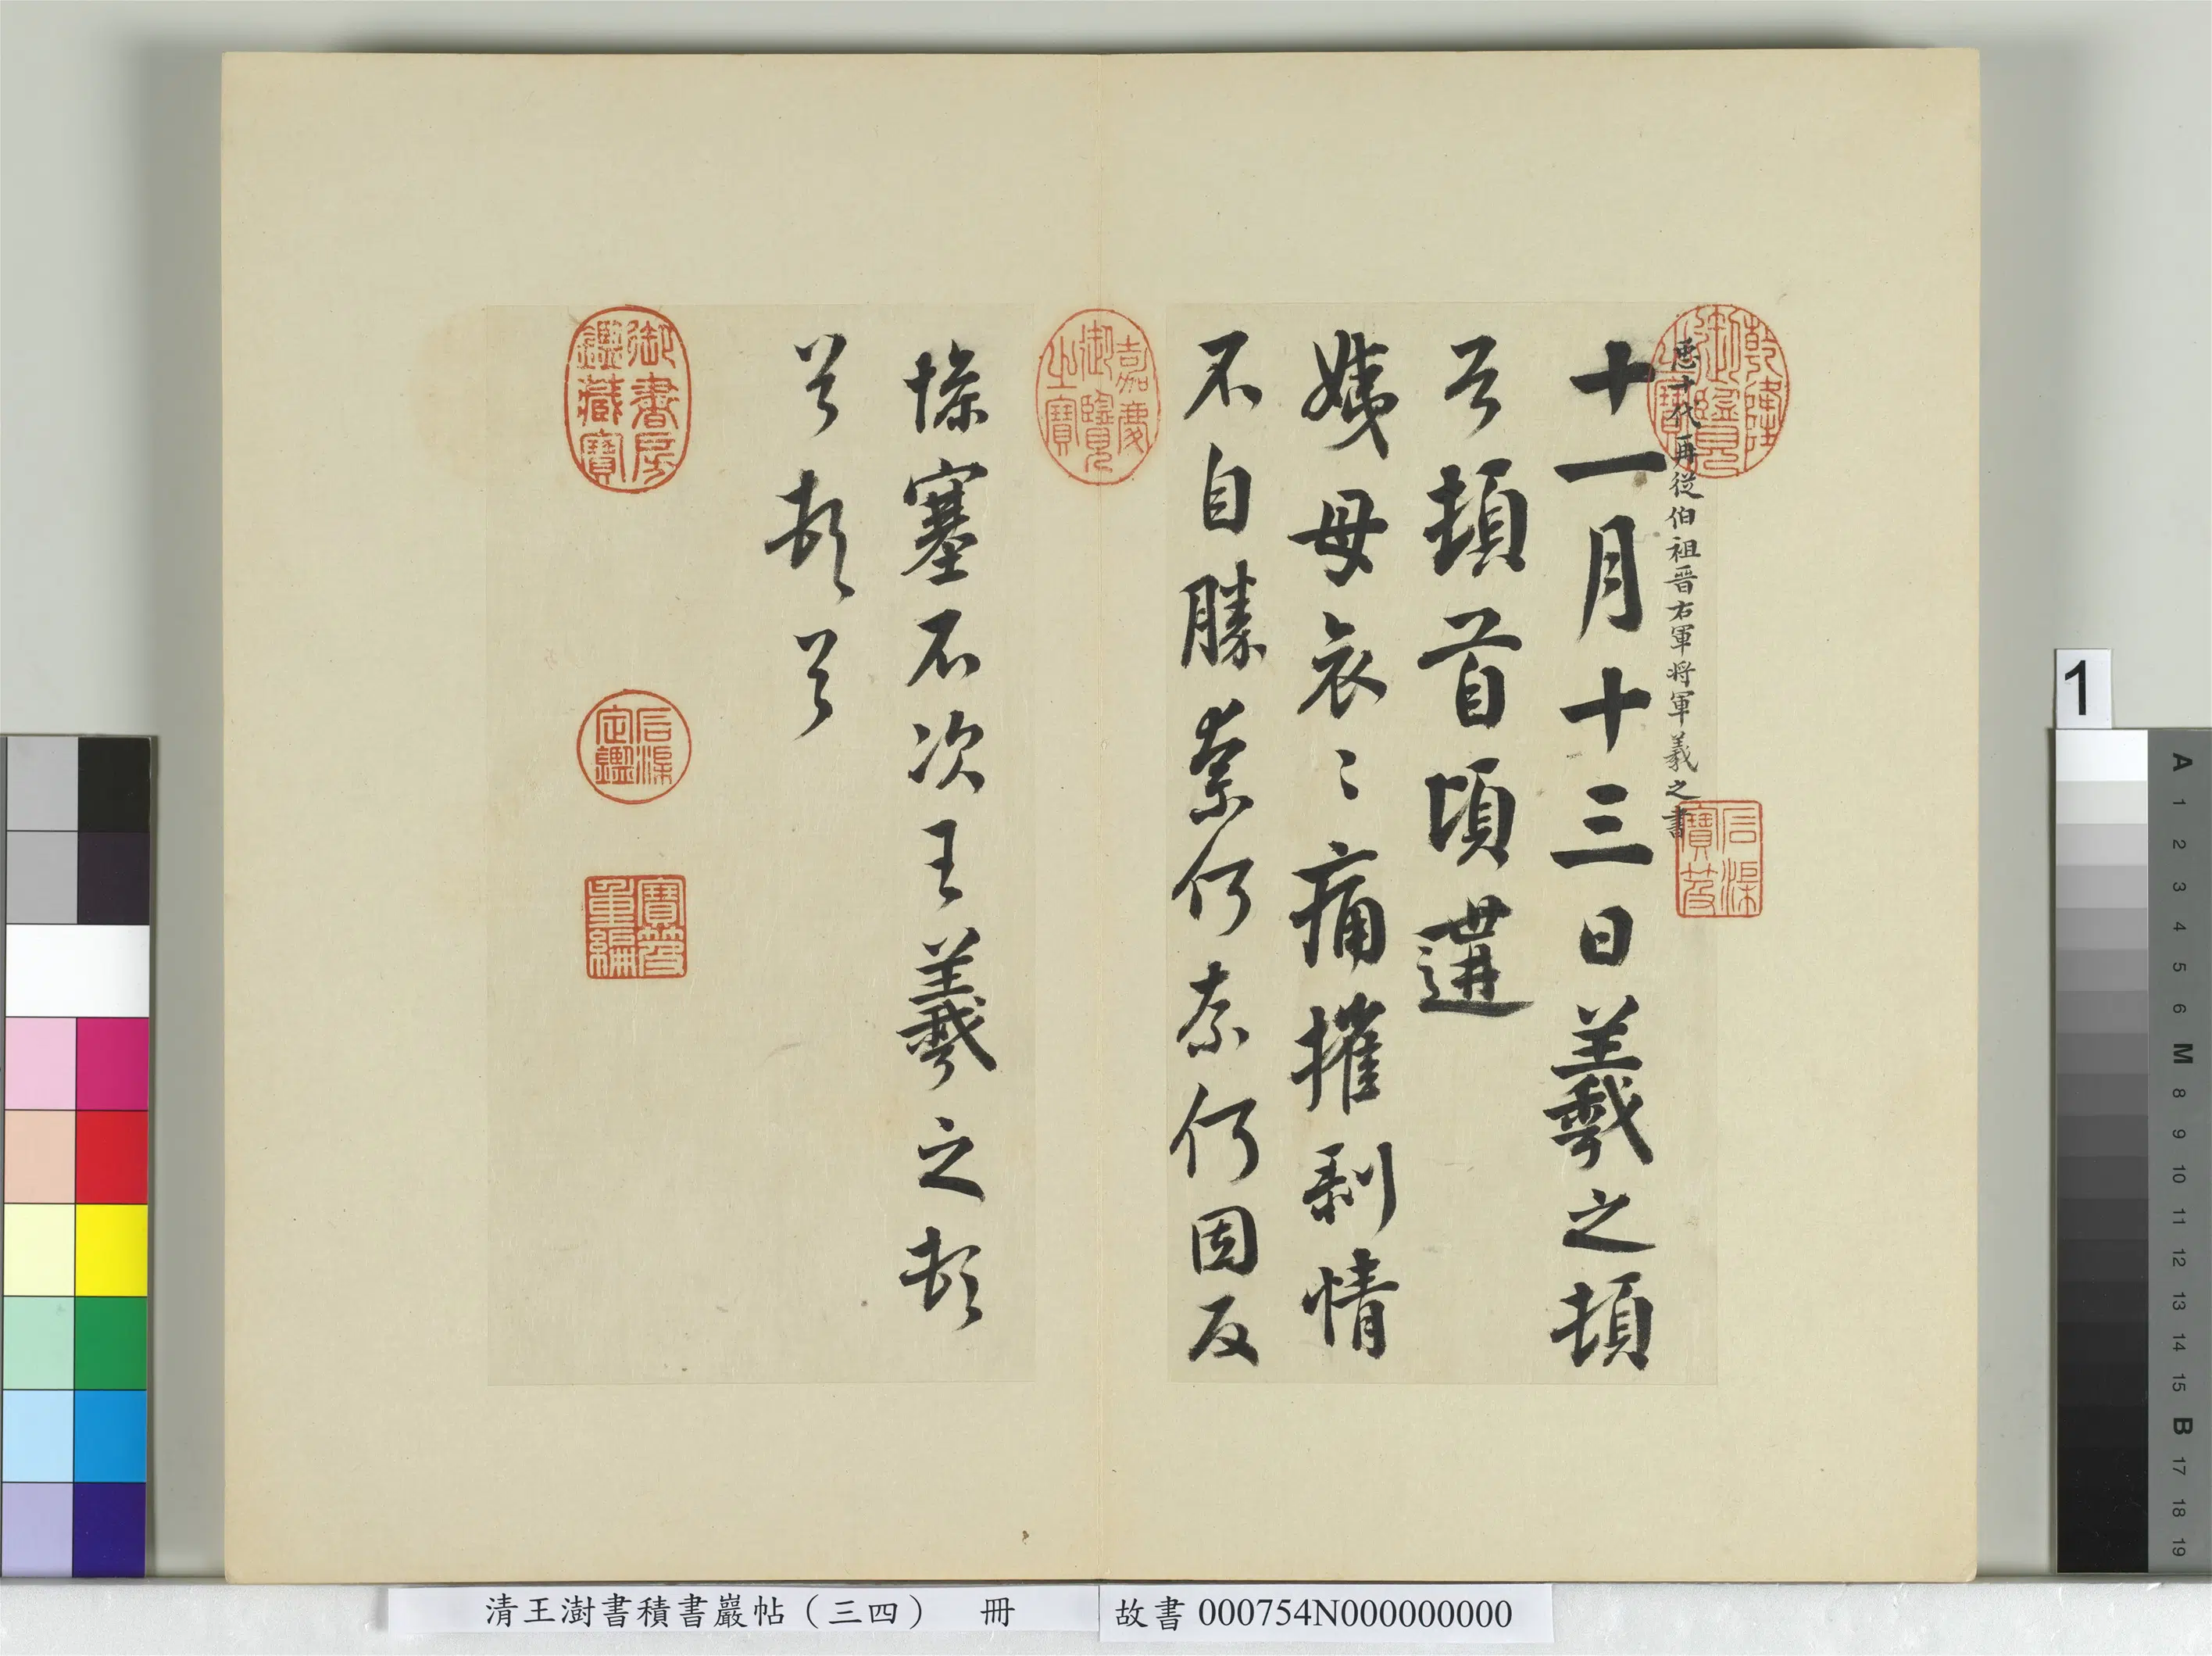 臣十代再從伯祖晉右軍將軍羲之書
十一月十三日羲之頓
首頓首頃遘
姨母哀〻痛摧剥情
不自勝柰何奈何因反
慘塞不次王羲之頓
首頓首
乾隆御覽之寶
石渠寶笈
嘉慶御覽之寶
御書房鑑藏寶
石渠定鑑
寶笈重編
清王澍書積書巖帖（三四） 冊
故書 000754N000000000
1
A
1
2
3
4
5
6
M
8
9
10
11
12
13
14
15
B
17
18
19